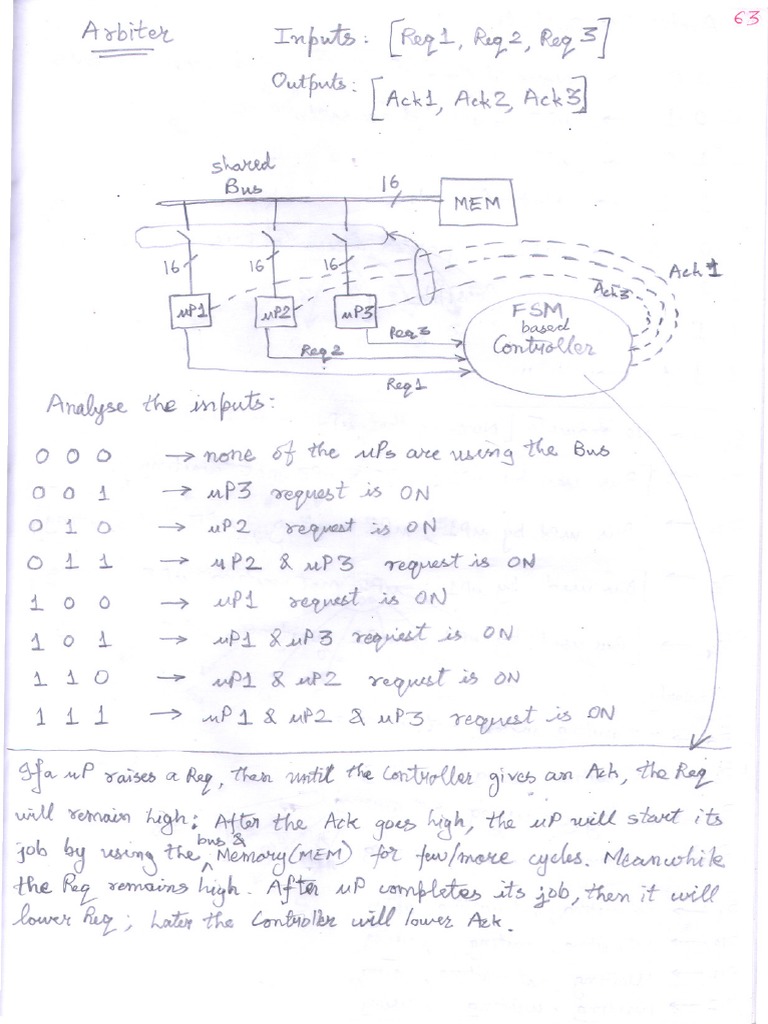 63
Arbiter
Inputs: [Req1, Req2, Req3]
Outputs: [Ack1, Ack2, Ack3]
shared
Bus
16
MEM
16
16
16
Ack1
Ack3
µP1
µP2
µP3
FSM
based
Controller
Req3
Req2
Req1
Analyse the inputs:
0 0 0 → none of the µPs are using the Bus
0 0 1 → µP3 request is ON
0 1 0 → µP2 request is ON
0 1 1 → µP2 & µP3 request is ON
1 0 0 → µP1 request is ON
1 0 1 → µP1 & µP3 request is ON
1 1 0 → µP1 & µP2 request is ON
1 1 1 → µP1 & µP2 & µP3 request is ON
If a µP raises a Req, then until the Controller gives an Ack, the Req
will remain high; After the Ack goes high, the µP will start its
job by using the bus & Memory(MEM) for few/more cycles. Meanwhile
the Req remains high. After µP completes its job, then it will
lower Req; Later the Controller will lower Ack.